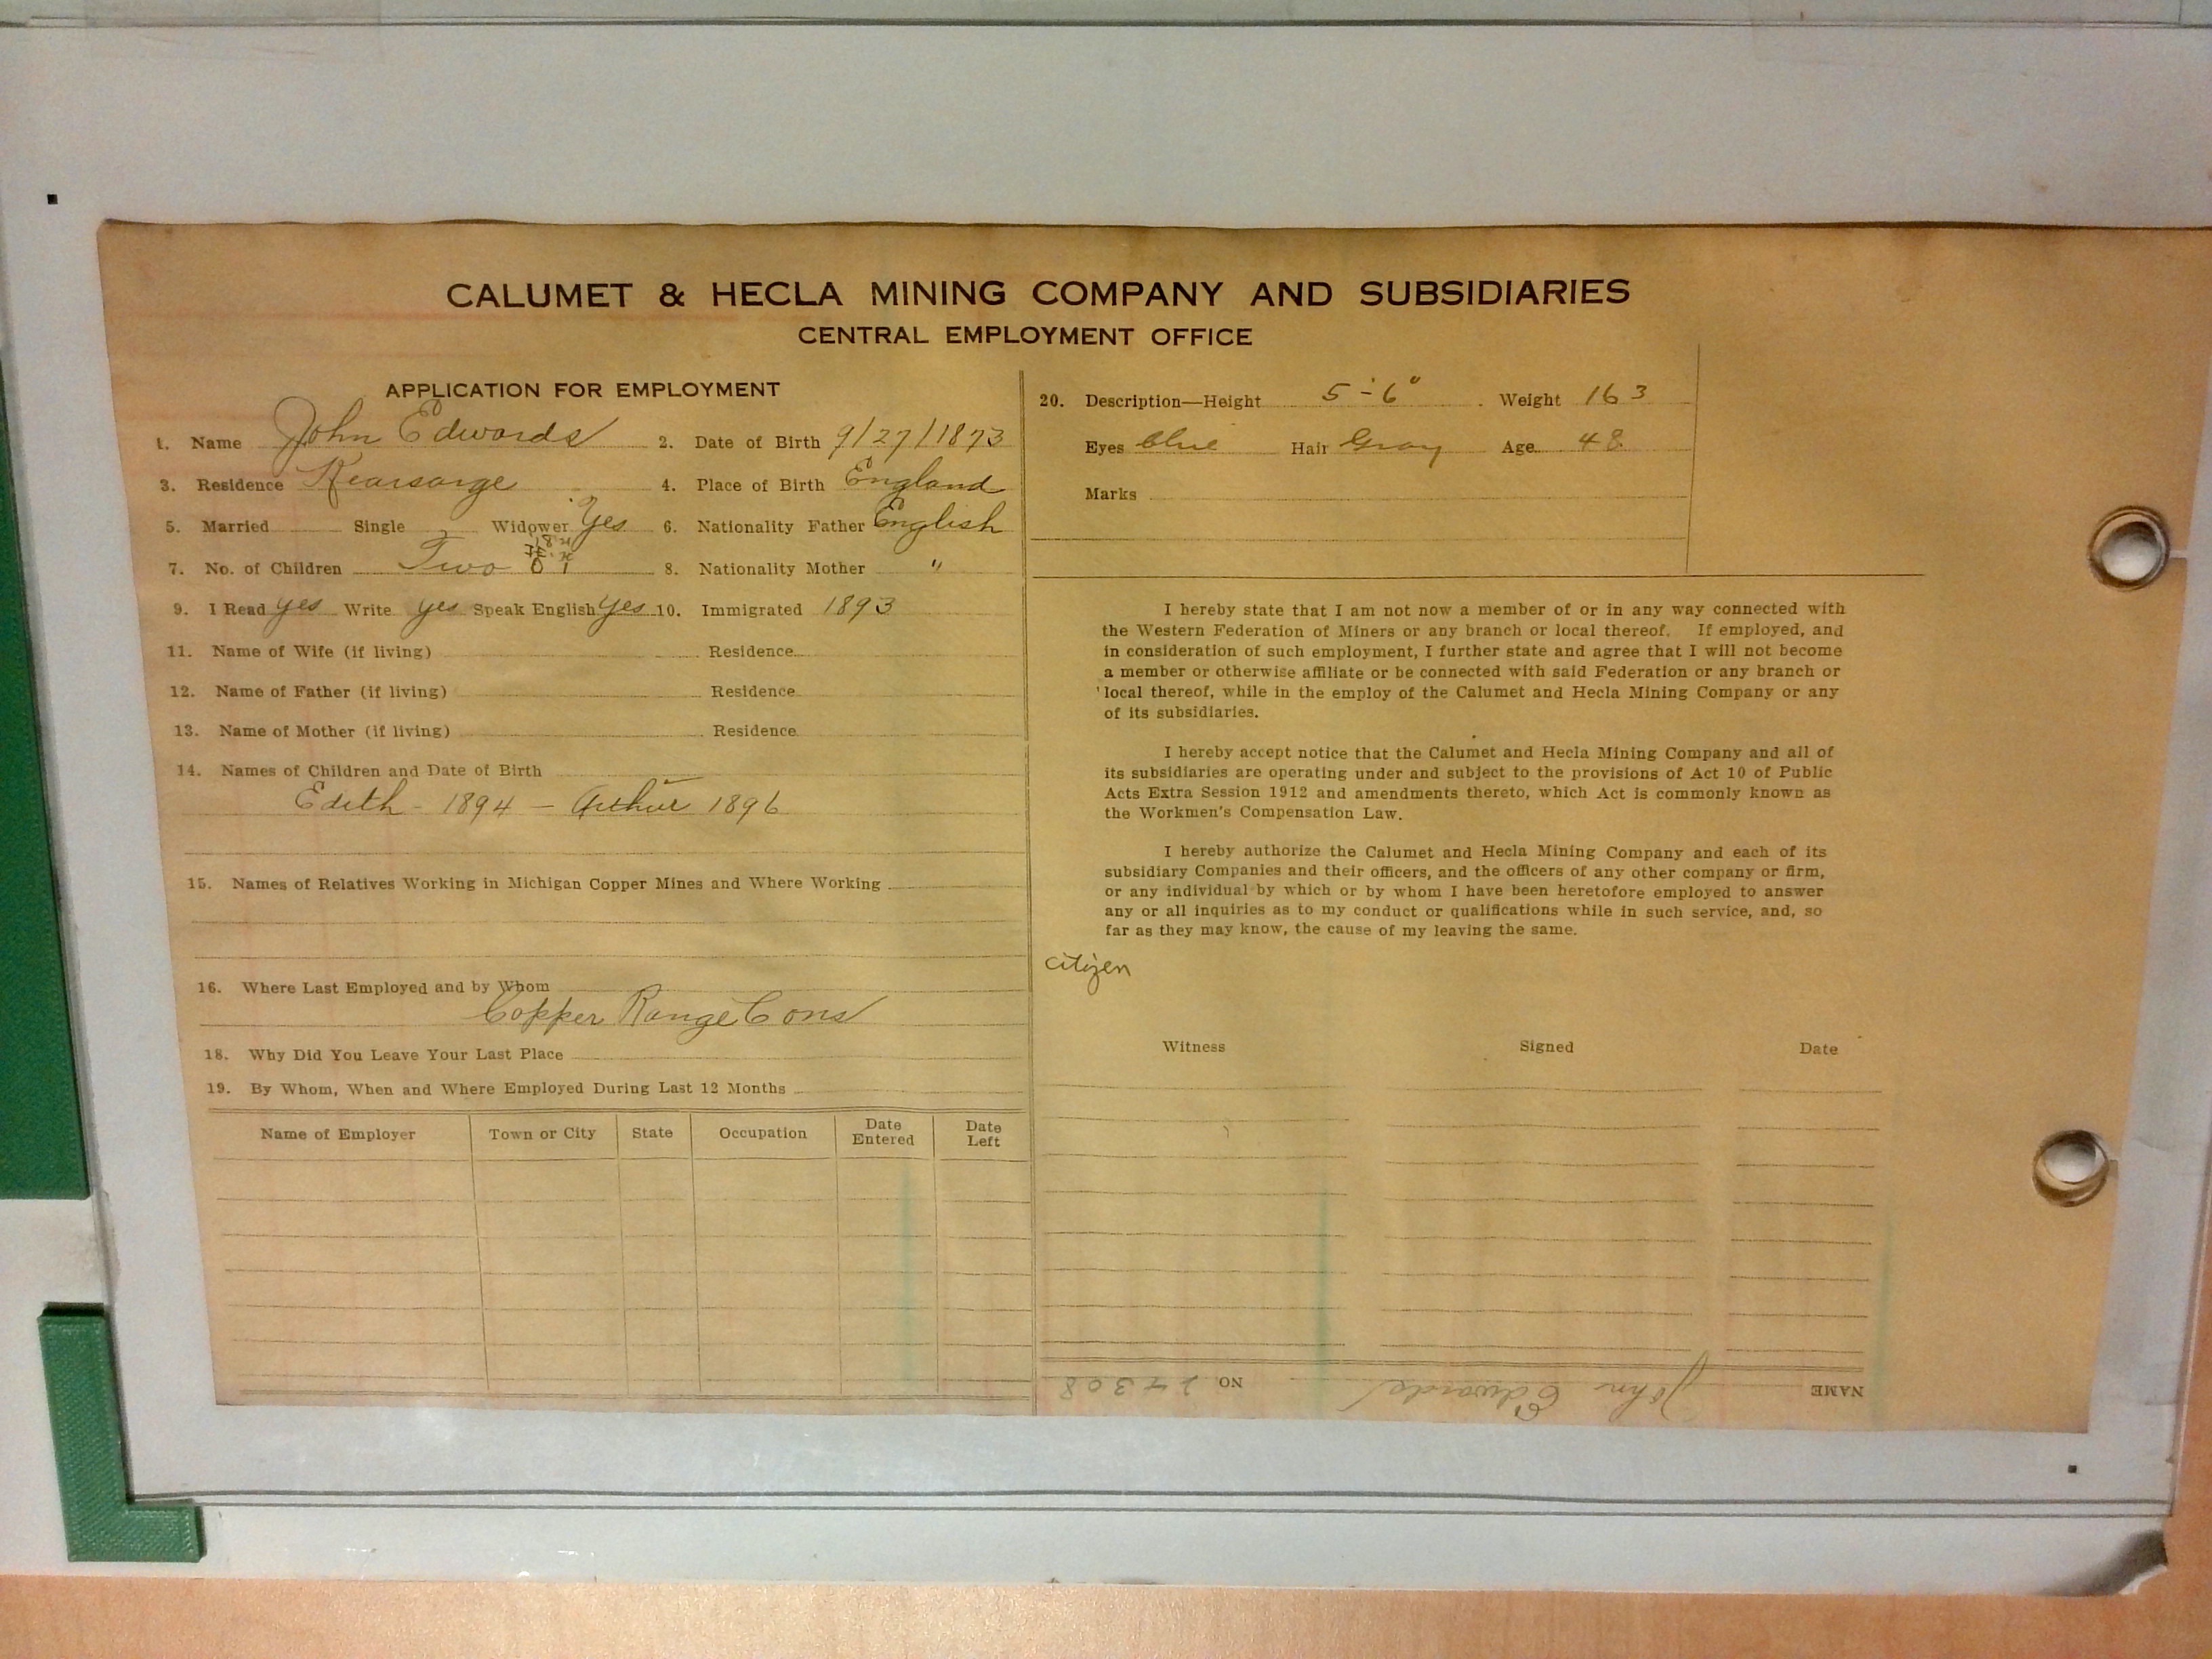 CALUMET & HECLA MINING COMPANY AND SUBSIDIARIES
CENTRAL EMPLOYMENT OFFICE
APPLICATION FOR EMPLOYMENT
1. Name John Edwards 2. Date of Birth 9/27/1873
3. Residence Kearsarge 4. Place of Birth England
5. Married Single Widower Yes 6. Nationality Father English
7. No. of Children Two 8. Nationality Mother "
9. I Read yes Write yes Speak English yes 10. Immigrated 1893
11. Name of Wife (if living) Residence
12. Name of Father (if living) Residence
13. Name of Mother (if living) Residence
14. Names of Children and Date of Birth
Edith - 1894 - Arthur 1896
15. Names of Relatives Working in Michigan Copper Mines and Where Working
16. Where Last Employed and by Whom
Copper Range Cons
18. Why Did You Leave Your Last Place
19. By Whom, When and Where Employed During Last 12 Months
Name of Employer Town or City State Occupation Date Entered Date Left
20. Description—Height 5'-6" Weight 163
Eyes blue Hair Gray Age 48
Marks
I hereby state that I am not now a member of or in any way connected with
the Western Federation of Miners or any branch or local thereof. If employed, and
in consideration of such employment, I further state and agree that I will not become
a member or otherwise affiliate or be connected with said Federation or any branch or
local thereof, while in the employ of the Calumet and Hecla Mining Company or any
of its subsidiaries.
I hereby accept notice that the Calumet and Hecla Mining Company and all of
its subsidiaries are operating under and subject to the provisions of Act 10 of Public
Acts Extra Session 1912 and amendments thereto, which Act is commonly known as
the Workmen's Compensation Law.
I hereby authorize the Calumet and Hecla Mining Company and each of its
subsidiary Companies and their officers, and the officers of any other company or firm,
or any individual by which or by whom I have been heretofore employed to answer
any or all inquiries as to my conduct or qualifications while in such service, and, so
far as they may know, the cause of my leaving the same.
citizen
Witness Signed Date
NAME John Edwards NO 24308